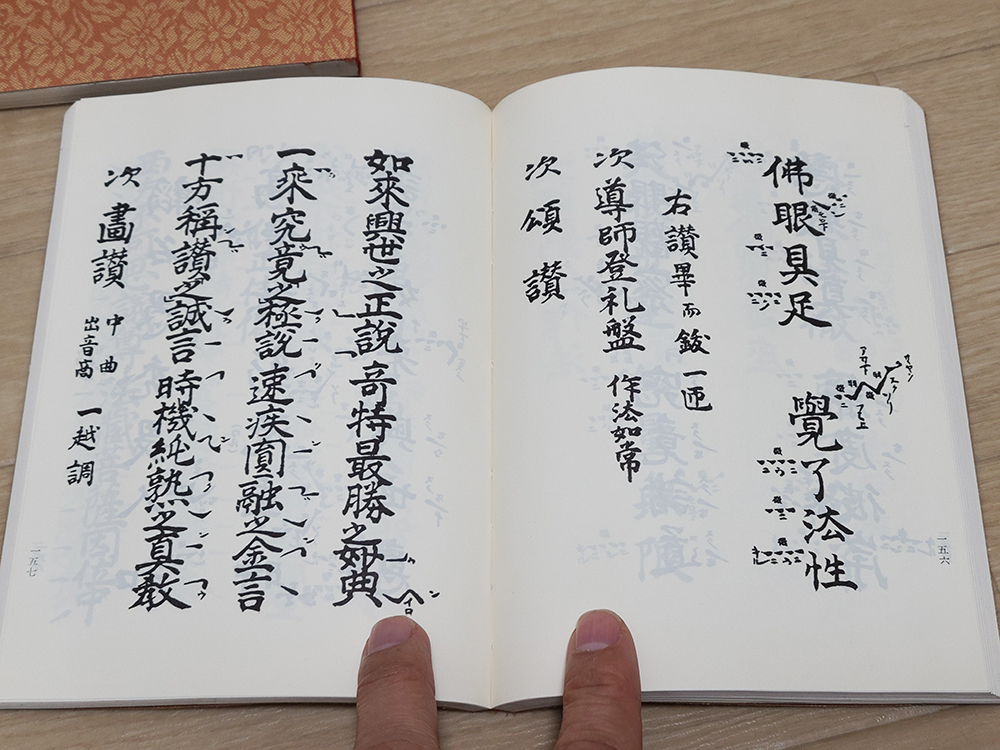 佛眼具足　覺了法性
右讃畢而鈸一匝
次導師登礼盤　作法如常
次頌讃
一五六
如來興世之正説　奇特最勝之妙典
一乘究竟之極説　速疾圓融之金言
十方稱讃之誠言　時機純熟之真教
次畫讃　中曲　出音商　一越調
一五七